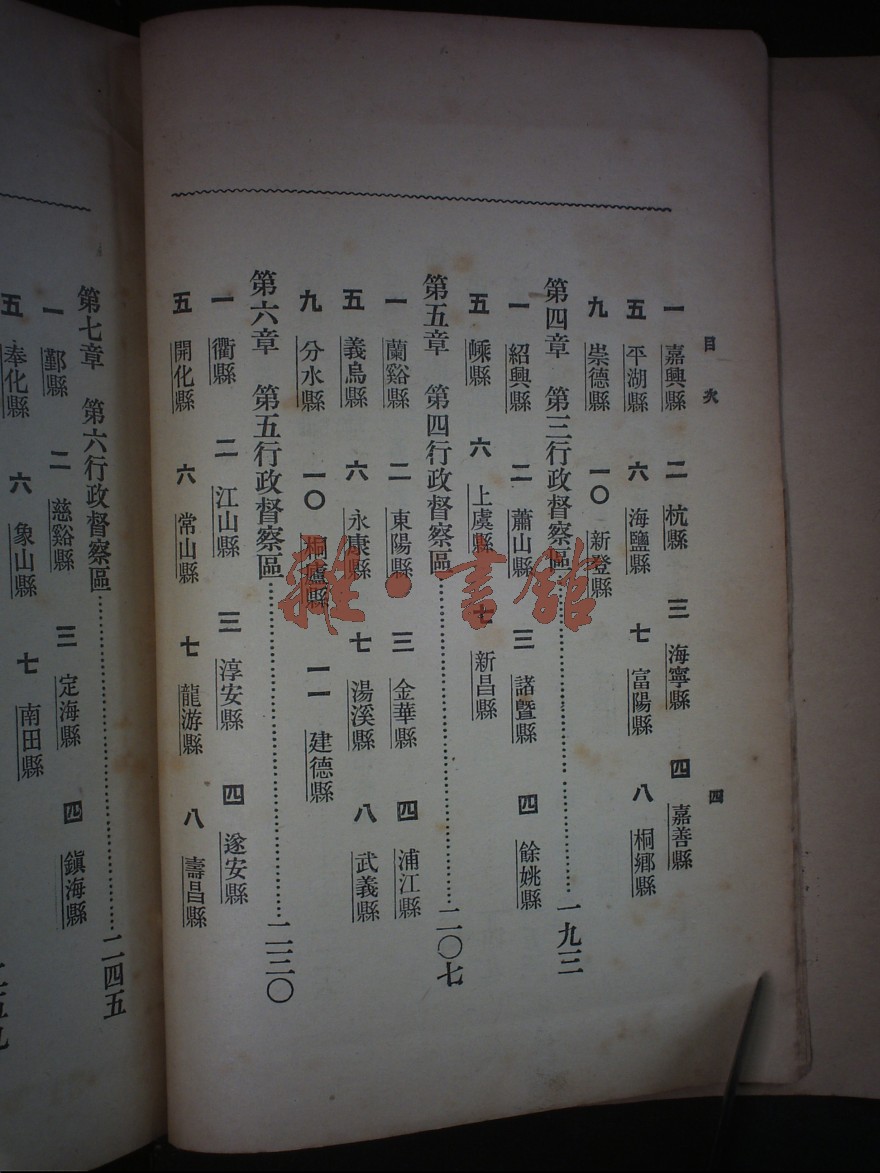 目次
四
一 嘉興縣 二 杭縣 三 海寧縣 四 嘉善縣
五 平湖縣 六 海鹽縣 七 富陽縣 八 桐鄉縣
九 崇德縣 一〇 新登縣
第四章 第三行政督察區……一九三
一 紹興縣 二 蕭山縣 三 諸暨縣 四 餘姚縣
五 嵊縣 六 上虞縣 七 新昌縣
第五章 第四行政督察區……二〇七
一 蘭谿縣 二 東陽縣 三 金華縣 四 浦江縣
五 義烏縣 六 永康縣 七 湯溪縣 八 武義縣
九 分水縣 一〇 桐廬縣 一一 建德縣
第六章 第五行政督察區……二三〇
一 衢縣 二 江山縣 三 淳安縣 四 遂安縣
五 開化縣 六 常山縣 七 龍游縣 八 壽昌縣
第七章 第六行政督察區……二四五
一 鄞縣 二 慈谿縣 三 定海縣 四 鎮海縣
五 奉化縣 六 象山縣 七 南田縣
雜·書館